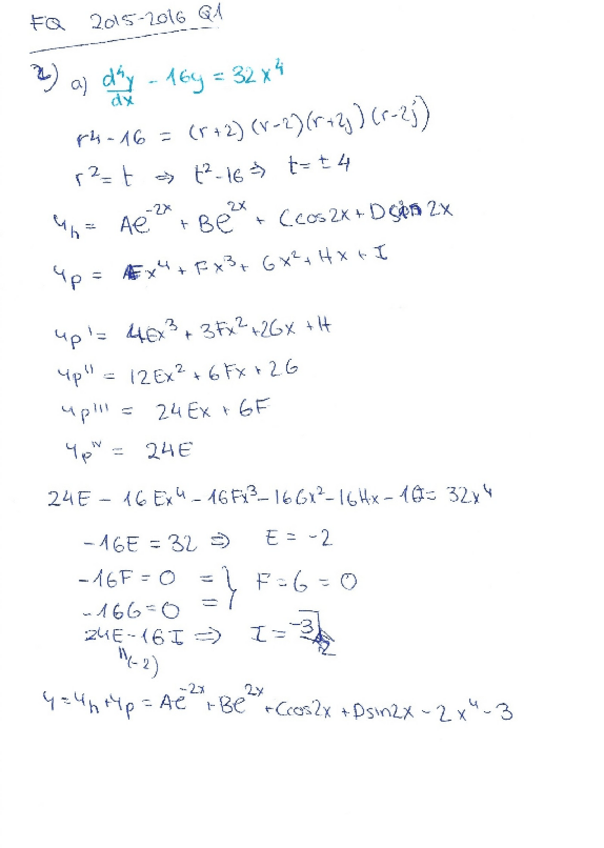 FQ 2015-2016 Q1
2) a) d⁴y/dx - 16y = 32x⁴
r4-16 = (r+2)(r-2)(r+2j)(r-2j)
r²=t ⇒ t²-16 ⇒ t=±4
yh = Ae^-2x + Be^2x + Ccos2x + Dsin2x
yp = Ex⁴ + Fx³ + Gx² + Hx + I
yp' = 4Ex³ + 3Fx² + 2Gx + H
yp'' = 12Ex² + 6Fx + 2G
yp''' = 24Ex + 6F
yp^IV = 24E
24E - 16Ex⁴ - 16Fx³ - 16Gx² - 16Hx - 16I = 32x⁴
-16E = 32 ⇒ E = -2
-16F = 0 = } F = G = 0
-16G = 0 =
24E - 16I ⇒ I = -3
(-2)
y = yh + yp = Ae^-2x + Be^2x + Ccos2x + Dsin2x - 2x⁴ - 3